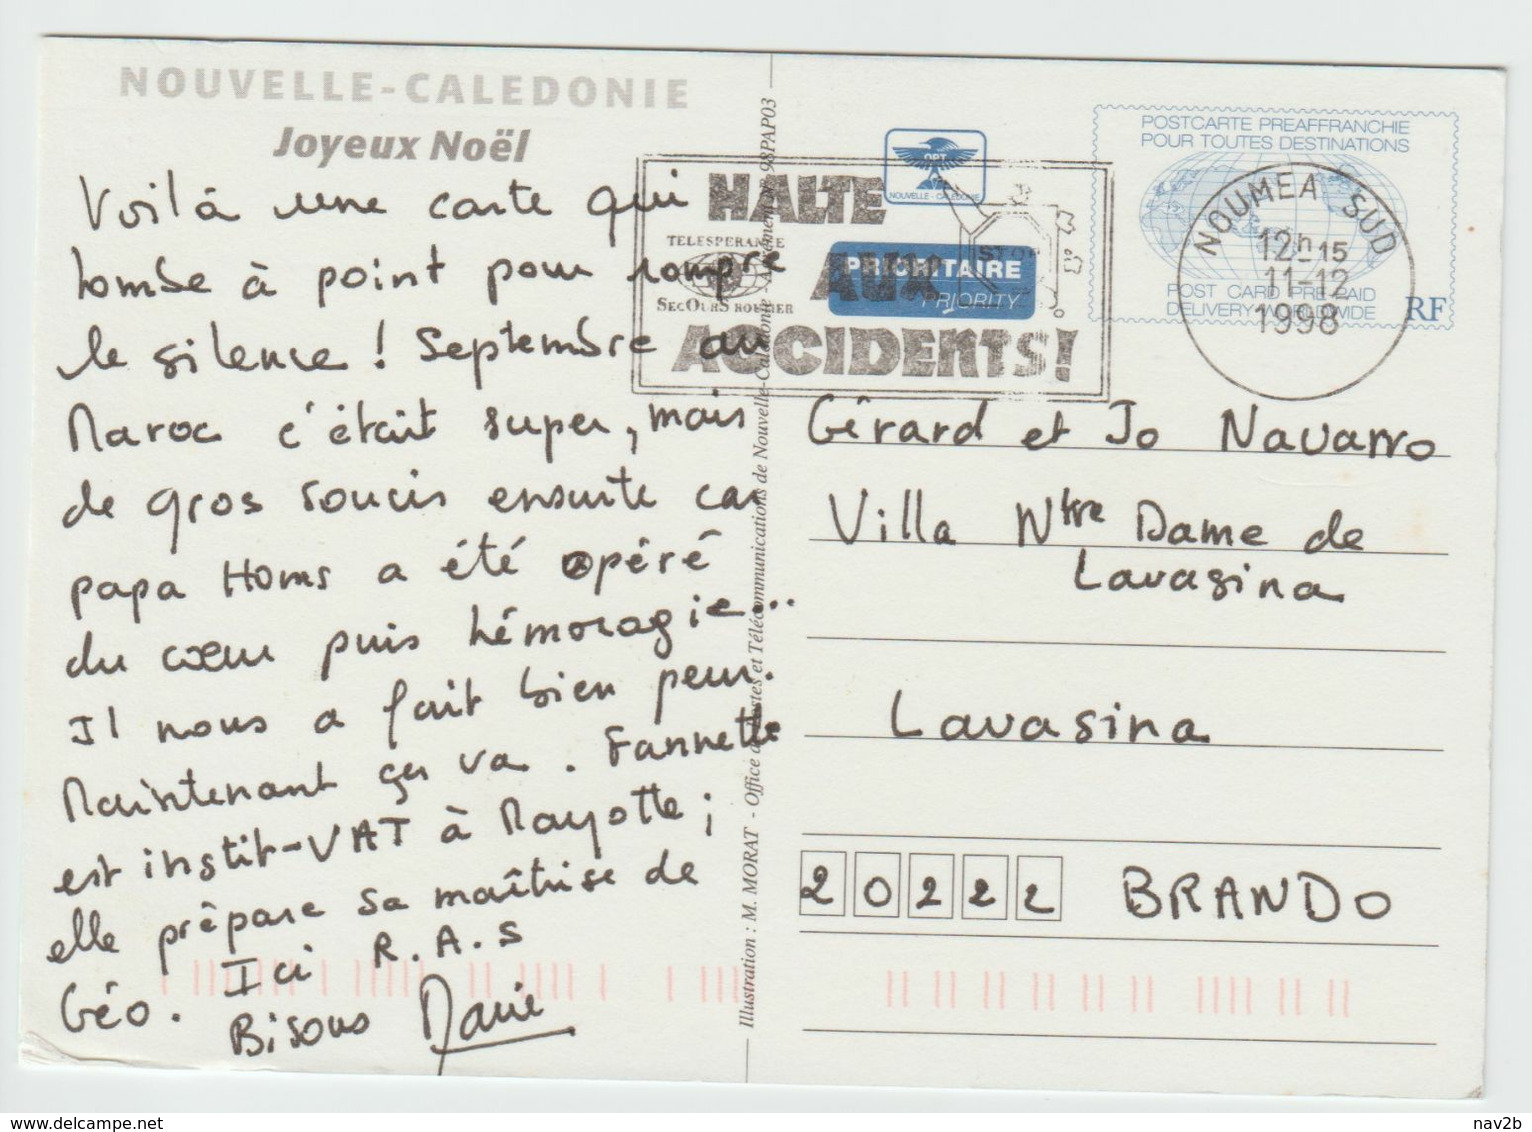 NOUVELLE-CALEDONIE
Joyeux Noël
Voilà une carte qui
tombe à point pour rompre
le silence ! Septembre au
Maroc c'était super, mais
de gros soucis ensuite car
papa Homs a été opéré
du cœur puis hémoragie...
Il nous a fait bien peur.
Maintenant ça va. Fannette
est instit-VAT à Mayotte ;
elle prépare sa maîtrise de
Géo. Ici R.A.S
Bisous Marie
Illustration : M. MORAT - Office des Postes et Télécommunications de Nouvelle-Calédonie - Agrément N° 98PAP03
HALTE
AUX
ACCIDENTS!
TELESPERANCE
SECOURS ROUTIER
STOP
OPT
NOUVELLE - CALEDONIE
PRIORITAIRE
PRIORITY
POSTCARTE PREAFFRANCHIE
POUR TOUTES DESTINATIONS
POST CARD PRE-PAID
DELIVERY WORLDWIDE
RF
NOUMEA SUD
12h15
11-12
1998
Gérard et Jo Navarro
Villa Ntre Dame de
Lavasina
Lavasina
20222 BRANDO
nav2b